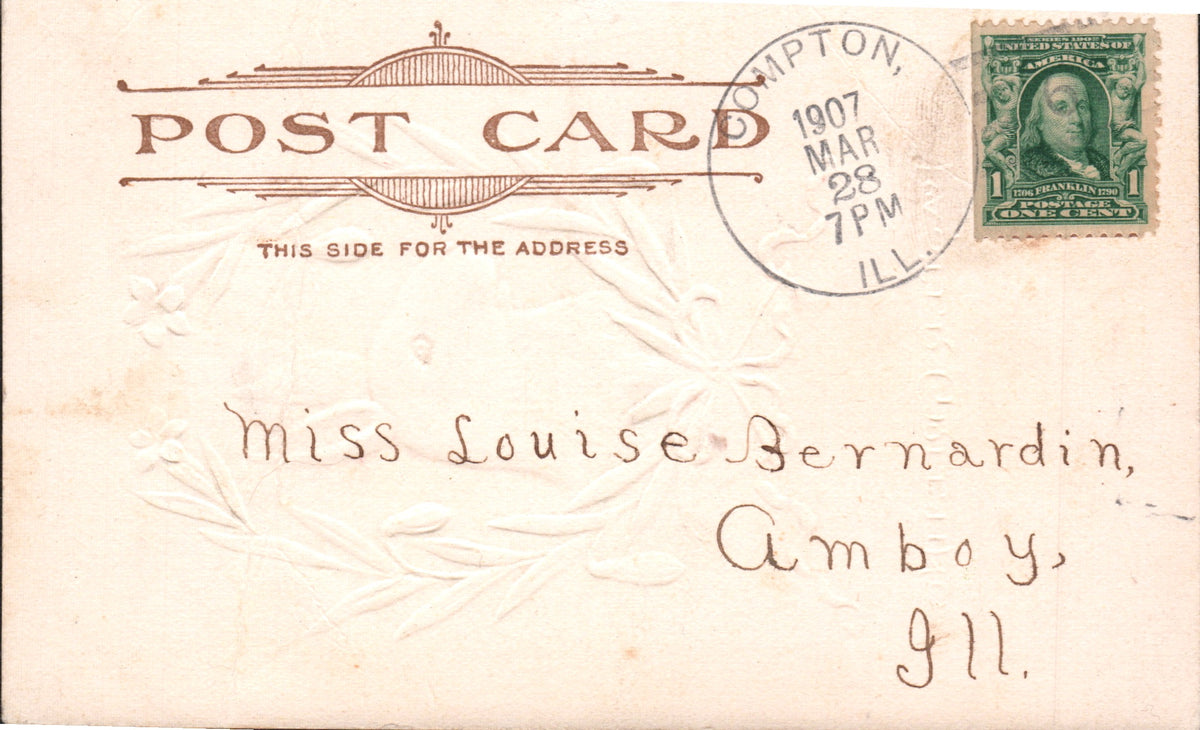 POST CARD
THIS SIDE FOR THE ADDRESS
COMPTON,
1907
MAR
28
7PM
ILL.
SERIES 1902
UNITED STATES OF
AMERICA
1 1706 FRANKLIN 1790 1
POSTAGE
ONE CENT
Miss Louise Bernardin,
Amboy,
Ill.